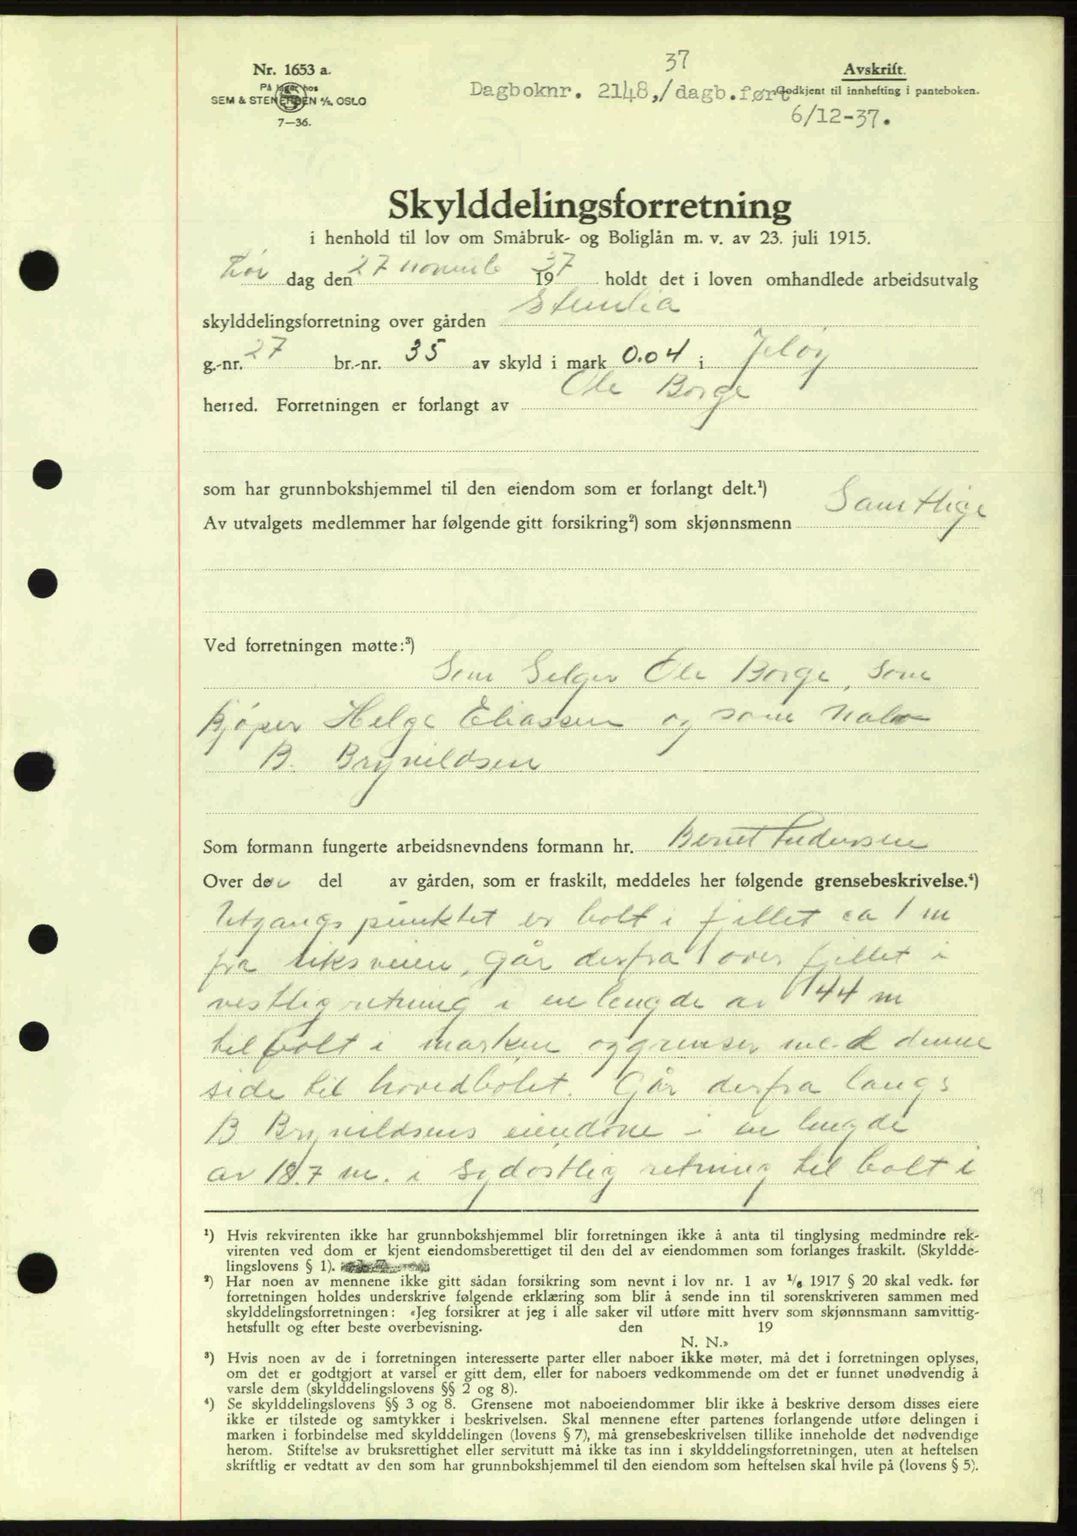 Nr. 1653 a.
På lager hos
SEM & STENERSEN A/S, OSLO
7—36.
37
Dagboknr. 2148,/dagb.ført
6/12-37.
Avskrift.
Godkjent til innhefting i panteboken.
Skylddelingsforretning
i henhold til lov om Småbruk- og Boliglån m. v. av 23. juli 1915.
Lør dag den 27 novemb 1937 holdt det i loven omhandlede arbeidsutvalg
skylddelingsforretning over gården Stenlia
g.-nr. 27 br.-nr. 35 av skyld i mark 0.04 i Jeløy
herred. Forretningen er forlangt av Ole Borge
som har grunnbokshjemmel til den eiendom som er forlangt delt.¹)
Av utvalgets medlemmer har følgende gitt forsikring²) som skjønnsmenn Samtlige
Ved forretningen møtte:³)
Som Selger Ole Borge, som
kjøper Helge Eliassen og som nabo
B. Brynildsen
Som formann fungerte arbeidsnevndens formann hr. Bernt Pedersen
Over den del av gården, som er fraskilt, meddeles her følgende grensebeskrivelse.⁴)
Utgangspunktet er bolt i fjellet ca 1 m
fra riksveien, går derfra over fjellet i
vestlig retning i en lengde av 144 m
til bolt i marken og grenser med denne
side til hovedbølet. Går derfra langs
B Brynildsens eiendom i en lengde
av 18.7 m. i sydøstlig retning til bolt i
¹) Hvis rekvirenten ikke har grunnbokshjemmel blir forretningen ikke å anta til tinglysing medmindre rek-
virenten ved dom er kjent eiendomsberettiget til den del av eiendommen som forlanges fraskilt. (Skyldde-
lingslovens § 1).
²) Har noen av mennene ikke gitt sådan forsikring som nevnt i lov nr. 1 av 1/6 1917 § 20 skal vedk. før
forretningen holdes underskrive følgende erklæring som blir å sende inn til sorenskriveren sammen med
skylddelingsforretningen: «Jeg forsikrer at jeg i alle saker vil utføre mitt hverv som skjønnsmann samvittig-
hetsfullt og efter beste overbevisning. den 19
N. N.»
³) Hvis noen av de i forretningen interesserte parter eller naboer ikke møter, må det i forretningen oplyses,
om det er godtgjort at varsel er gitt dem, eller for naboers vedkommende om det er funnet unødvendig å
varsle dem (skylddelingslovens §§ 2 og 8).
⁴) Se skylddelingslovens §§ 3 og 8. Grensene mot naboeiendommer blir ikke å beskrive dersom disses eiere
ikke er tilstede og samtykker i beskrivelsen. Skal mennene efter partenes forlangende utføre delingen i
marken i forbindelse med skylddelingen (lovens § 7), må grensebeskrivelsen tillike inneholde det nødvendige
herom. Stiftelse av bruksrettighet eller servitutt må ikke tas inn i skylddelingsforretningen, uten at heftelsen
skriftlig er vedtatt av den som har grunnbokshjemmel til den eiendom som heftelsen skal hvile på (lovens § 5).